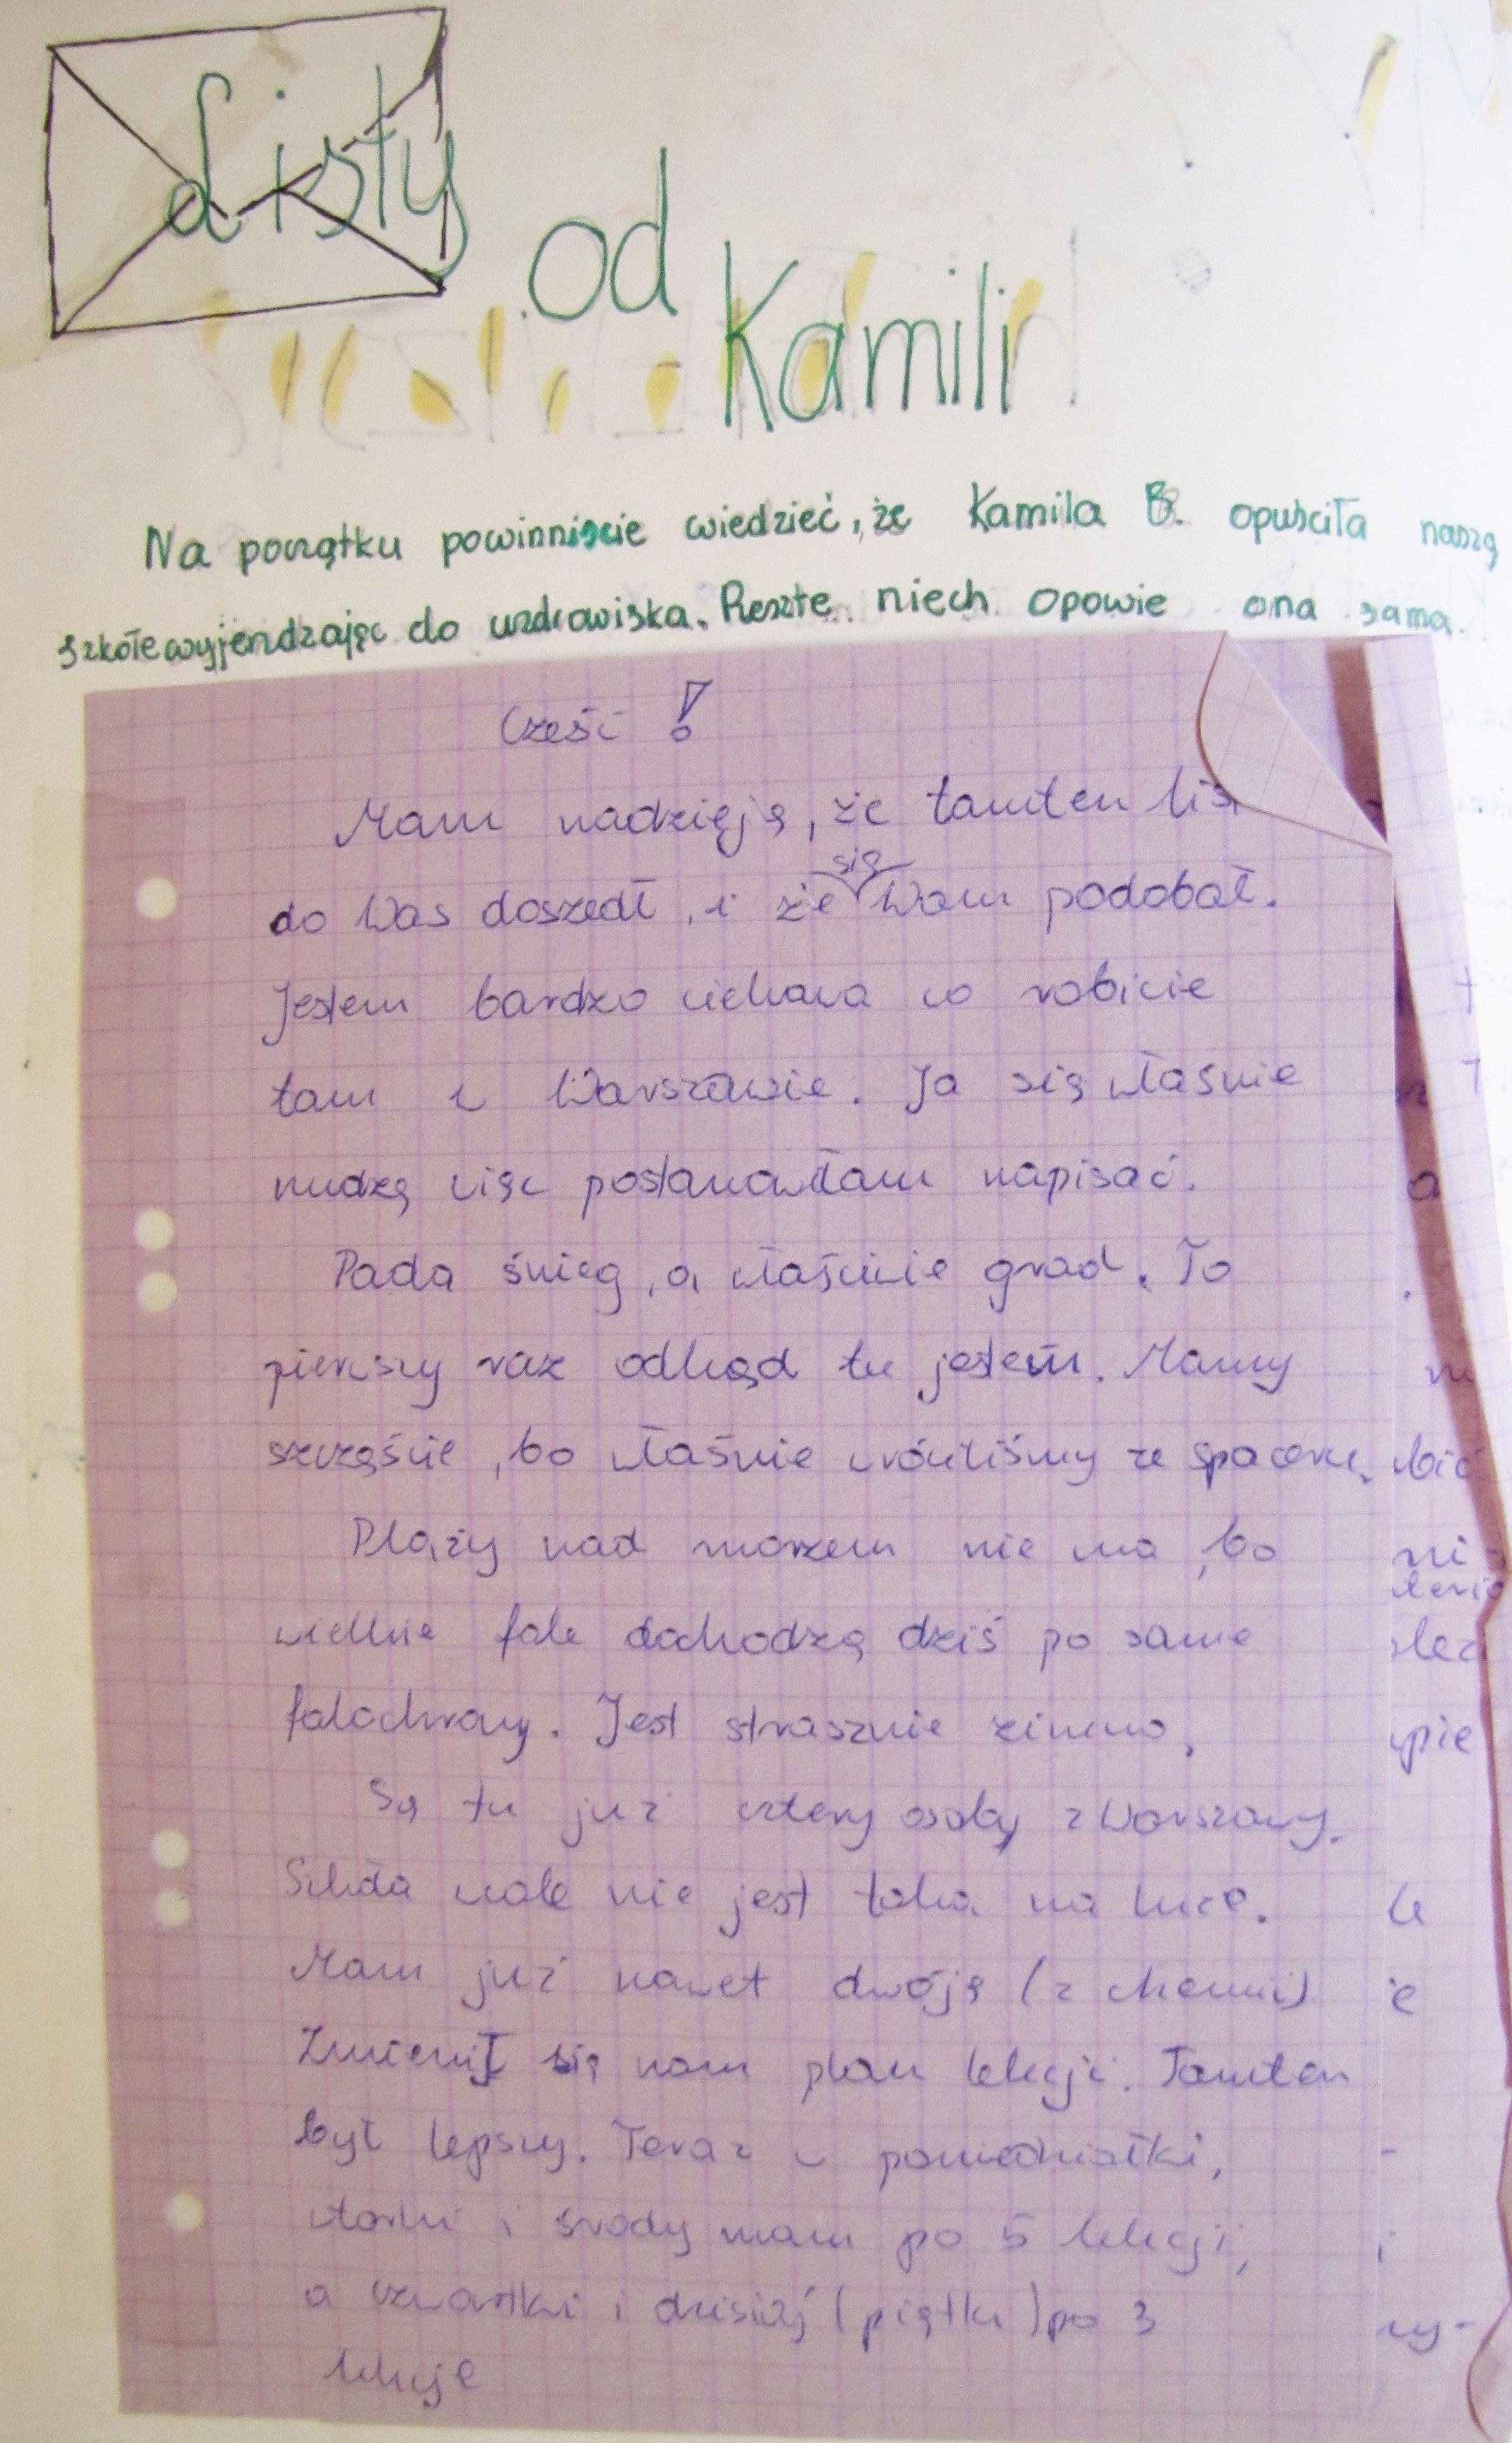 Listy od Kamili
Na początku powinniście wiedzieć, że Kamila B. opuściła naszą
szkołe wyjerdzając do uzdrowiska. Reszte niech opowie ona sama.
Cześć!
Mam nadzięję, że tamten lis
do Was doszedł, i że się Wam podobał.
Jestem bardzo ciekawa co robicie
tam w Warszawie. Ja się właśnie
nudzę więc postanowiłam napisać.
Pada śnieg, a właściwie grad. To
pierwszy raz odkąd tu jestem. Mamy
szczęście, bo właśnie wróciliśmy ze spaceru.
Plaży nad morzem nie ma, bo
wielkie fale dochodzą dziś po same
falochrony. Jest strasznie zimno.
Są tu już cztery osoby z Warszawy.
Szkoła wcale nie jest taka na luce.
Mam już nawet dwóję (z chemii)
Zmienił się nam plan lekcji. Tamten
był lepszy. Teraz w poniedziałki,
wtorki i środy mam po 5 lekcji,
a czwartki i dzisiaj (piątki) po 3
lekcje